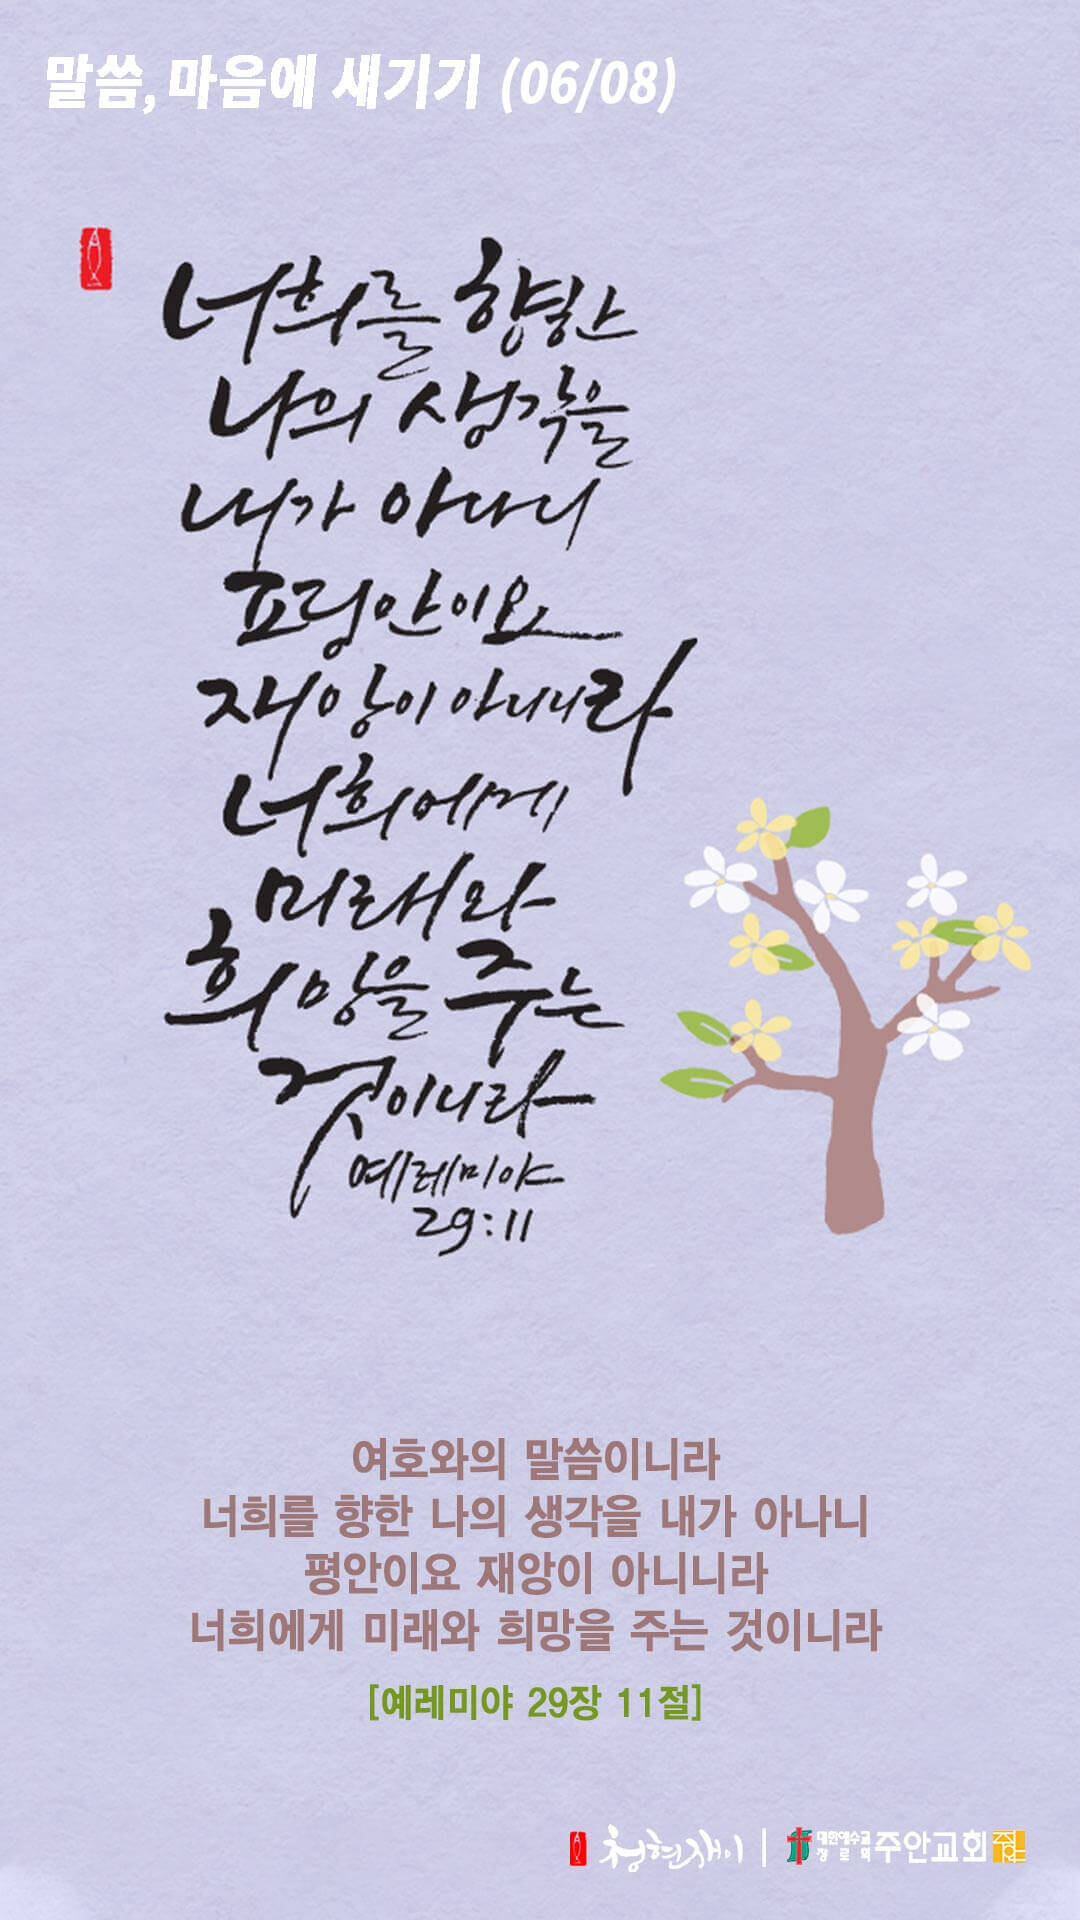 말씀, 마음에 새기기 (06/08)
너희를 향한
나의 생각을
내가 아나니
평안이요
재앙이 아니니라
너희에게
미래와
희망을 주는
것이니라
예레미야
29:11
여호와의 말씀이니라
너희를 향한 나의 생각을 내가 아나니
평안이요 재앙이 아니니라
너희에게 미래와 희망을 주는 것이니라
[예레미야 29장 11절]
청현재이 | 대한예수교장로회 주안교회 주안